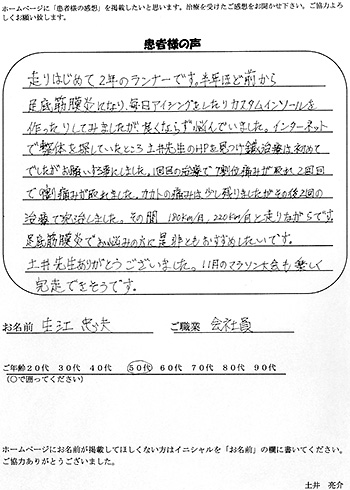 ホームページに「患者様の感想」を掲載したいと思います。治療を受けてご感想をお聞かせ下さい。ご協力よろ
しくお願い致します。
患者様の声
走りはじめて2年のランナーです。半年ほど前から
足底筋膜炎になり、毎日アイシングをしたりカスタムインソールを
作ったりしてみましたが良くならず悩んでいました。インターネット
で整体を探していたところ土井先生のHPを見つけ鍼治療は初めて
でしたがお願いする事にしました。1回目の治療で7割位痛みが取れ2回目
で9割痛みが取れました。カカトの痛みは少し残りましたがその後2回の
治療で完治しました。その間 180km/月、220km/月と走りながらです。
足底筋膜炎でお悩みの方に是非ともおすすめしたいです。
土井先生ありがとうございました。11月のマラソン大会も楽しく
完走できそうです。
お名前 生江 ご職業 会社員
ご年齢20代 30代 40代 50代 60代 70代 80代 90代
(〇で囲ってください)
ホームページにお名前が掲載してほしくない方はイニシャルを「お名前」の欄に書いてください。
ご協力ありがとうございました。
土井 亮介